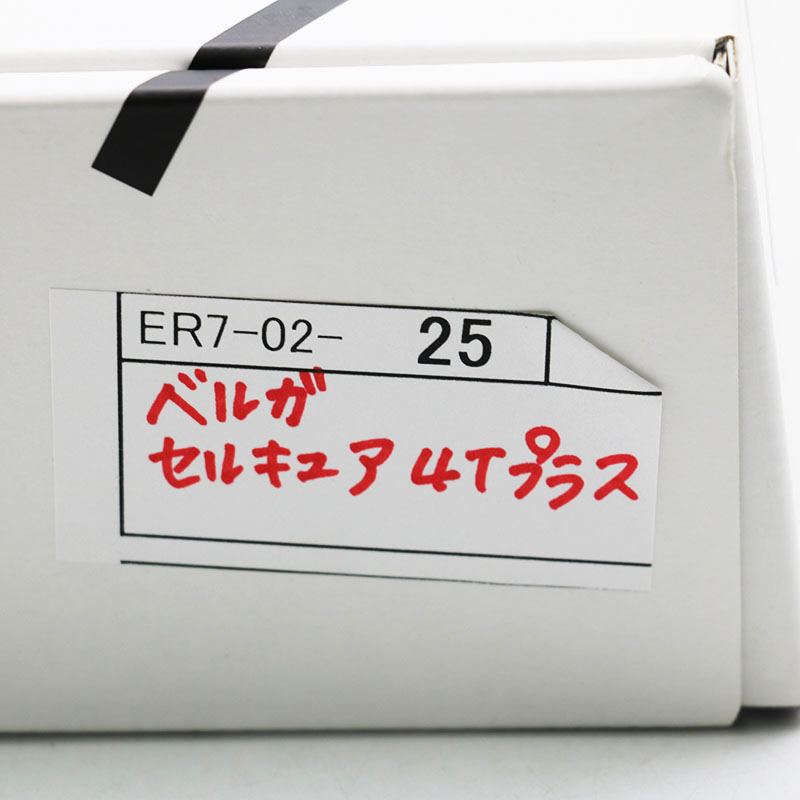 ER7-02- 25
ベルガ
セルキュア4Tプラス